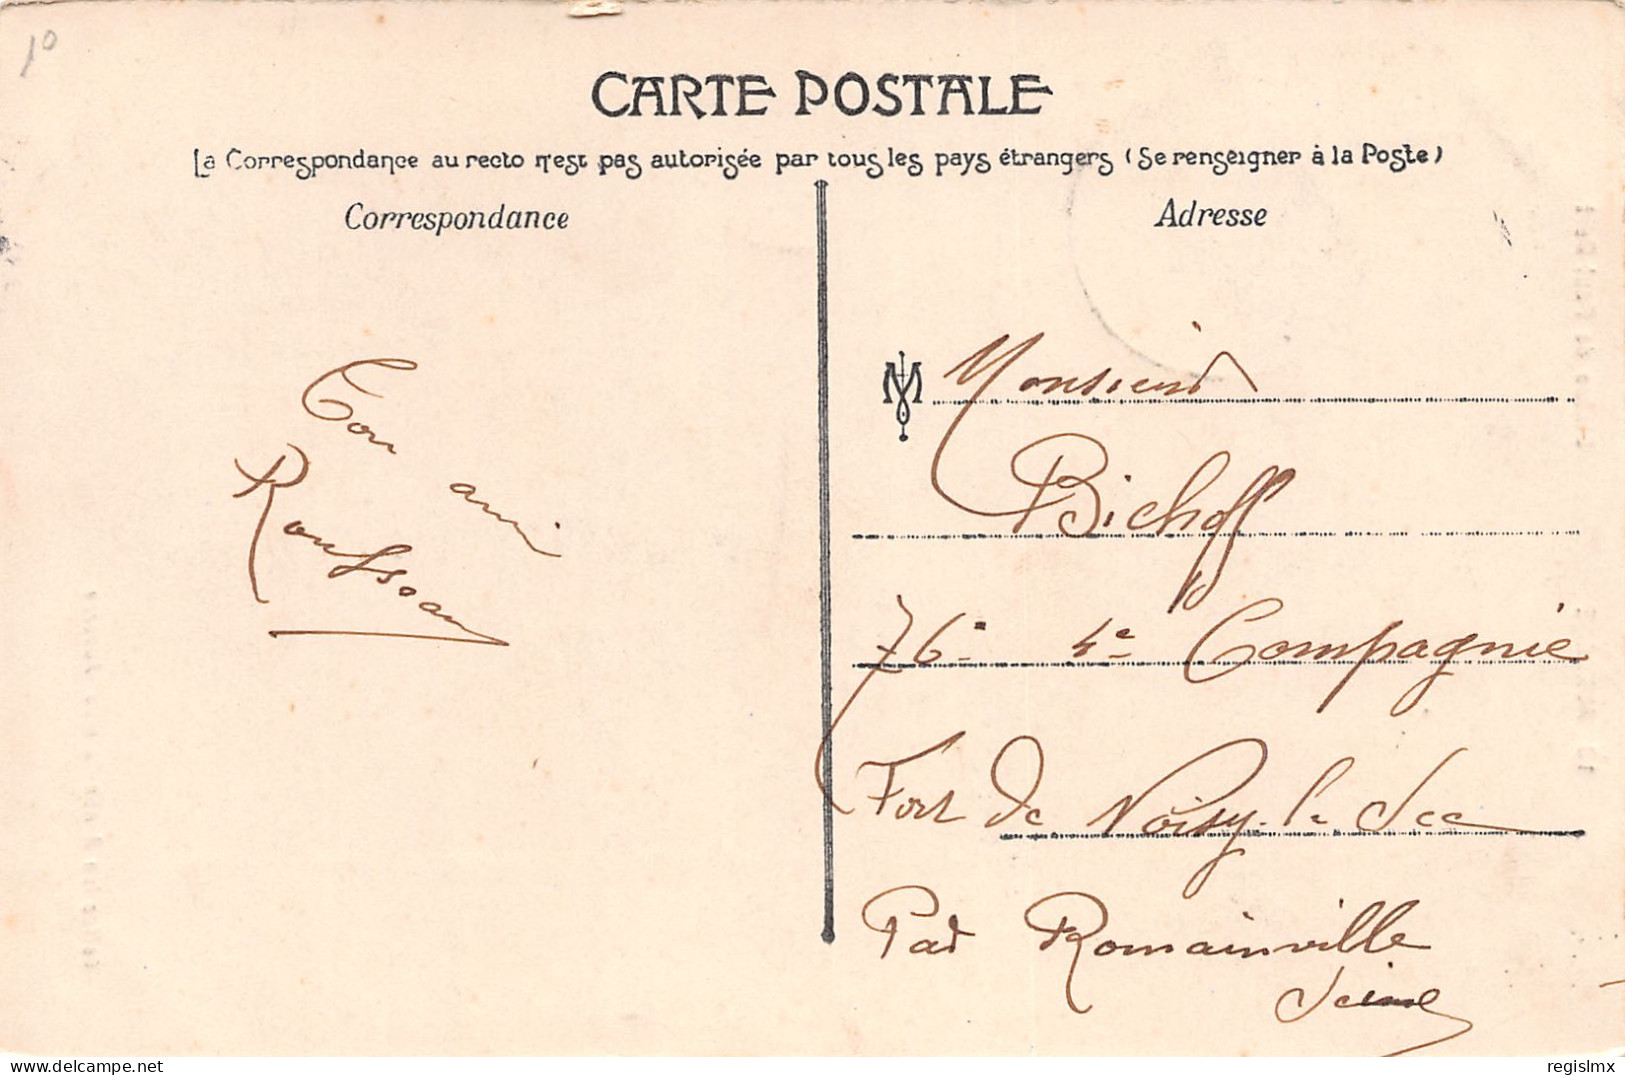 10
CARTE POSTALE
La Correspondance au recto n'est pas autorisée par tous les pays étrangers (Se renseigner à la Poste)
Correspondance
Ton ami
Rousseau
Adresse
Monsieur
Bichoff
76e 4e Compagnie
Fort de Noisy-le Sec
Par Romainville
Seine
regislmx